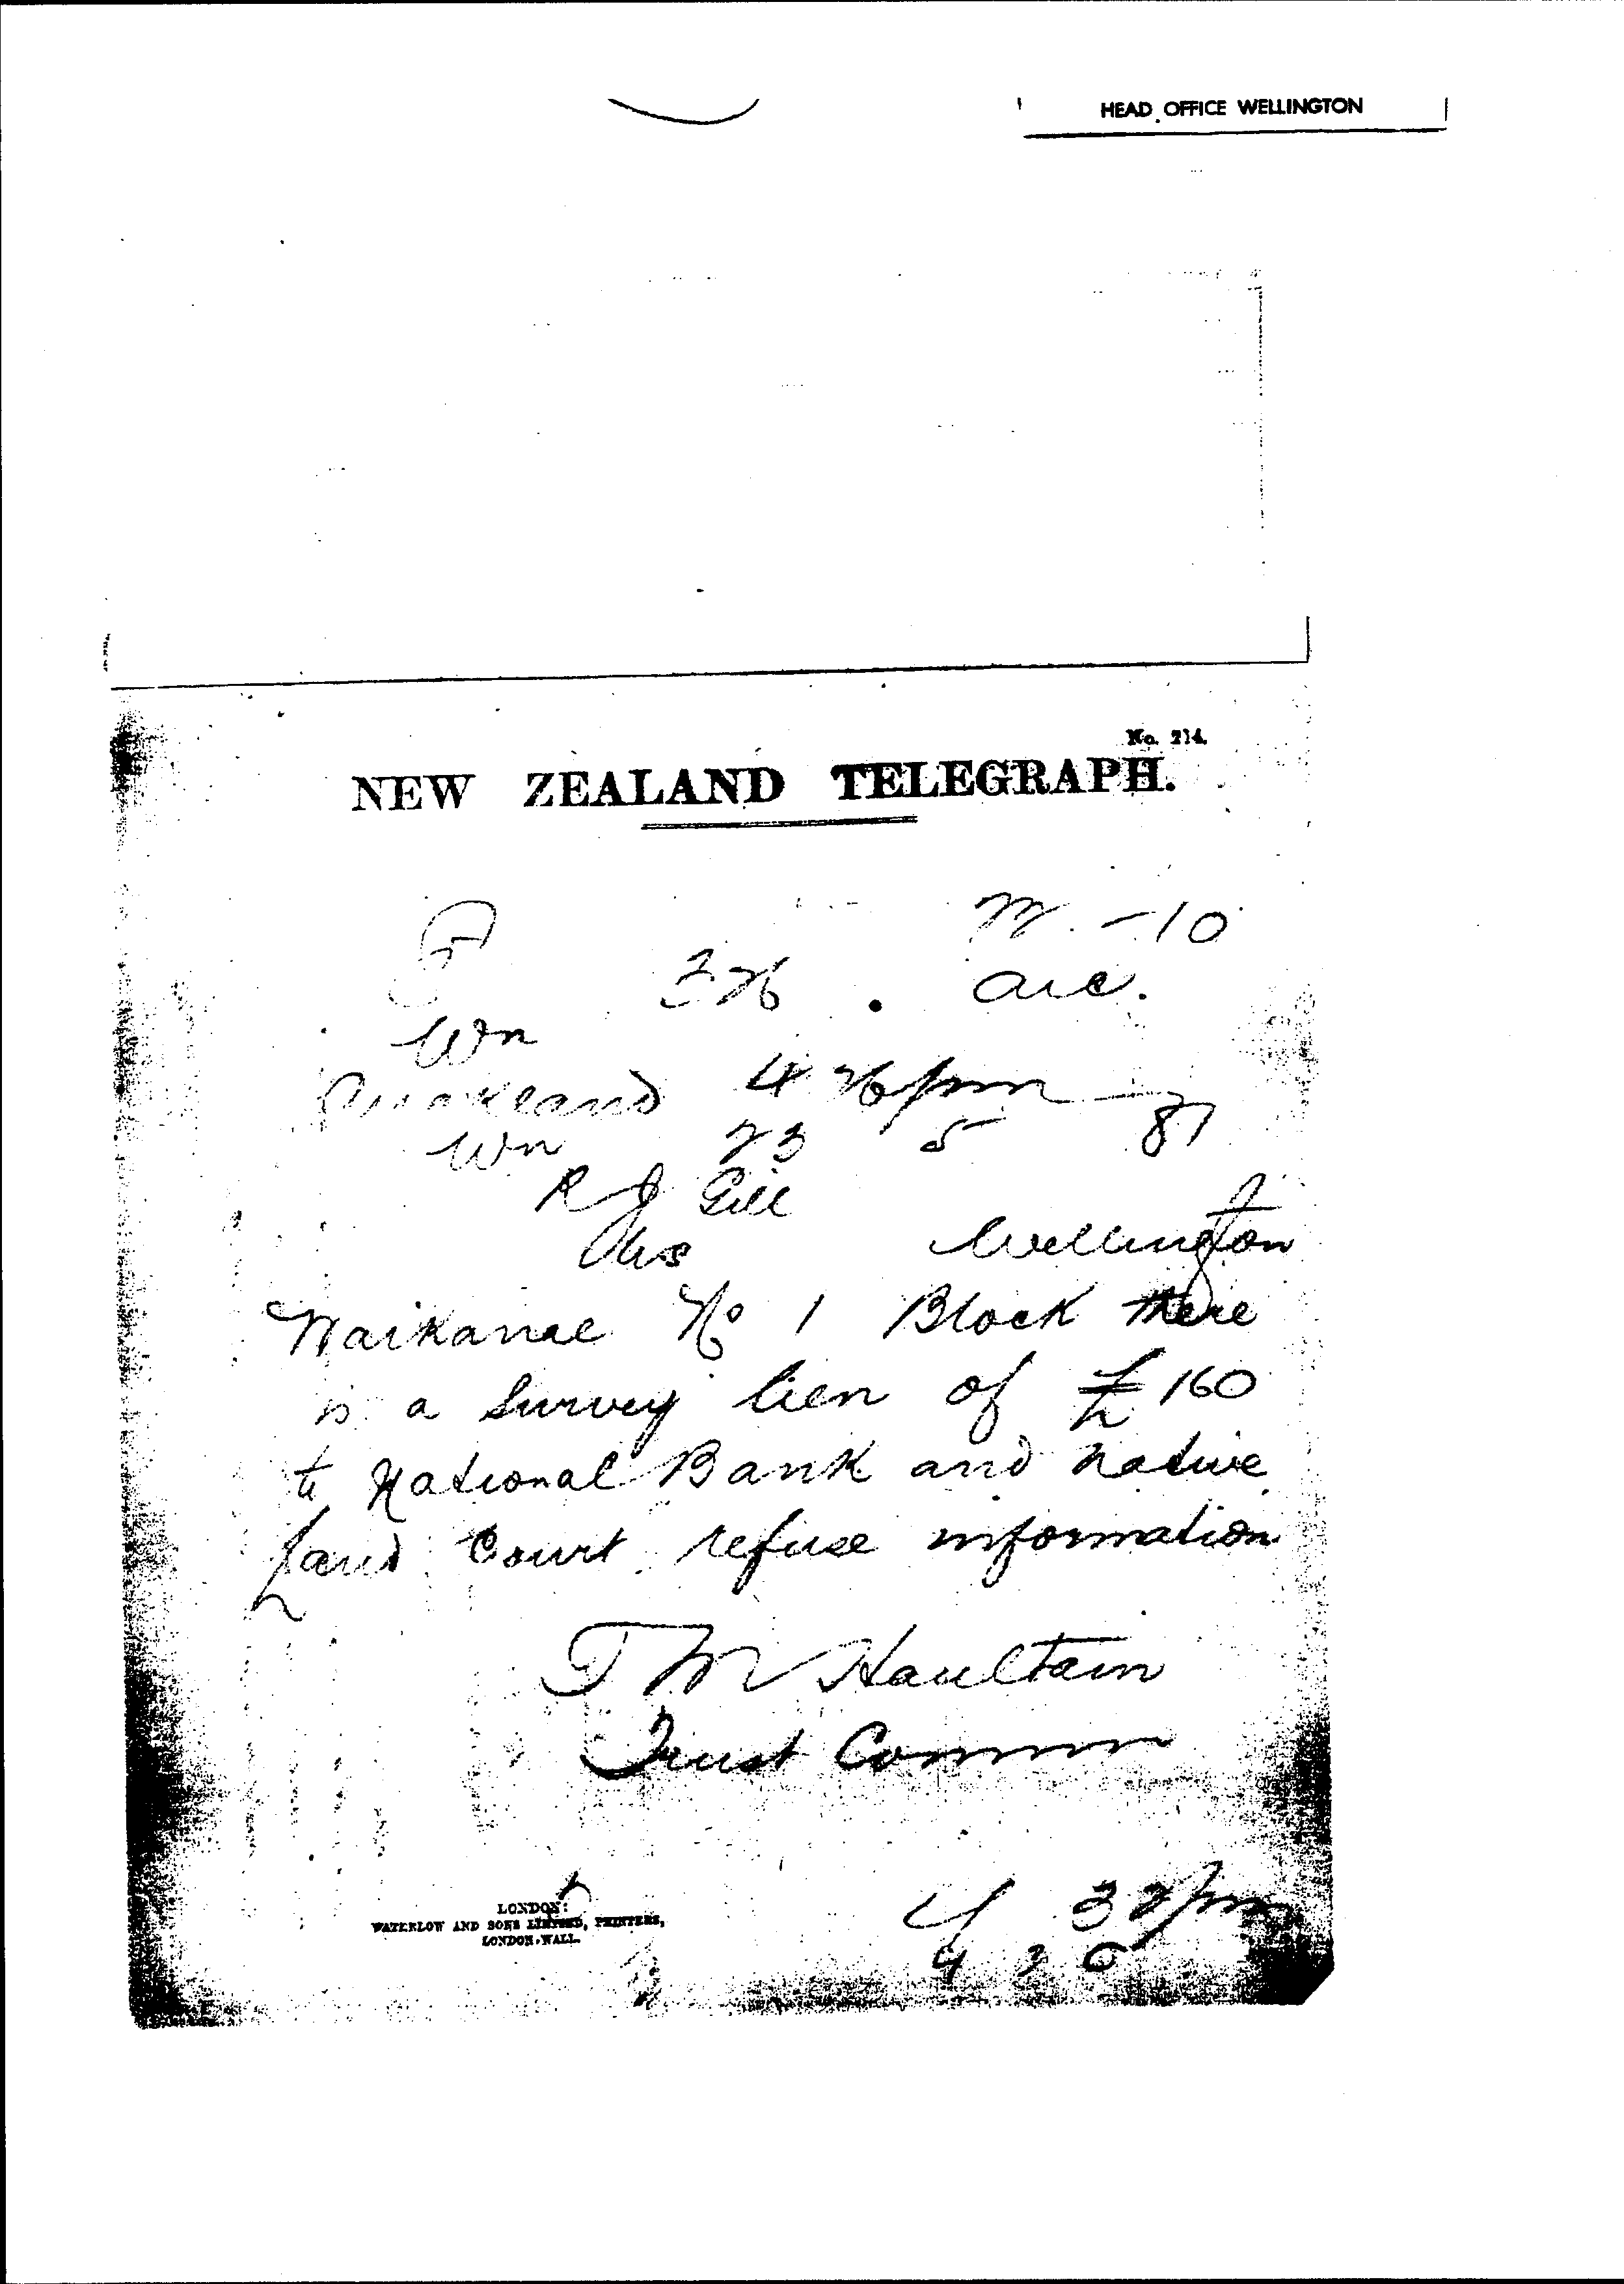 HEAD OFFICE WELLINGTON
No. 214.
NEW ZEALAND TELEGRAPH.
M. - 10
326 . 
Wn
Auckland 4 26 pm
Wn 23 5 87
R J Gill
Wellington
Waikanae No 1 Block there
is a Survey lien of £160
to National Bank and native
Land Court refuse information
T M Haultain
Trust Commr
LONDON:
WATERLOW AND SONS LIMITED, PRINTERS,
LONDON WALL.
4 32 pm